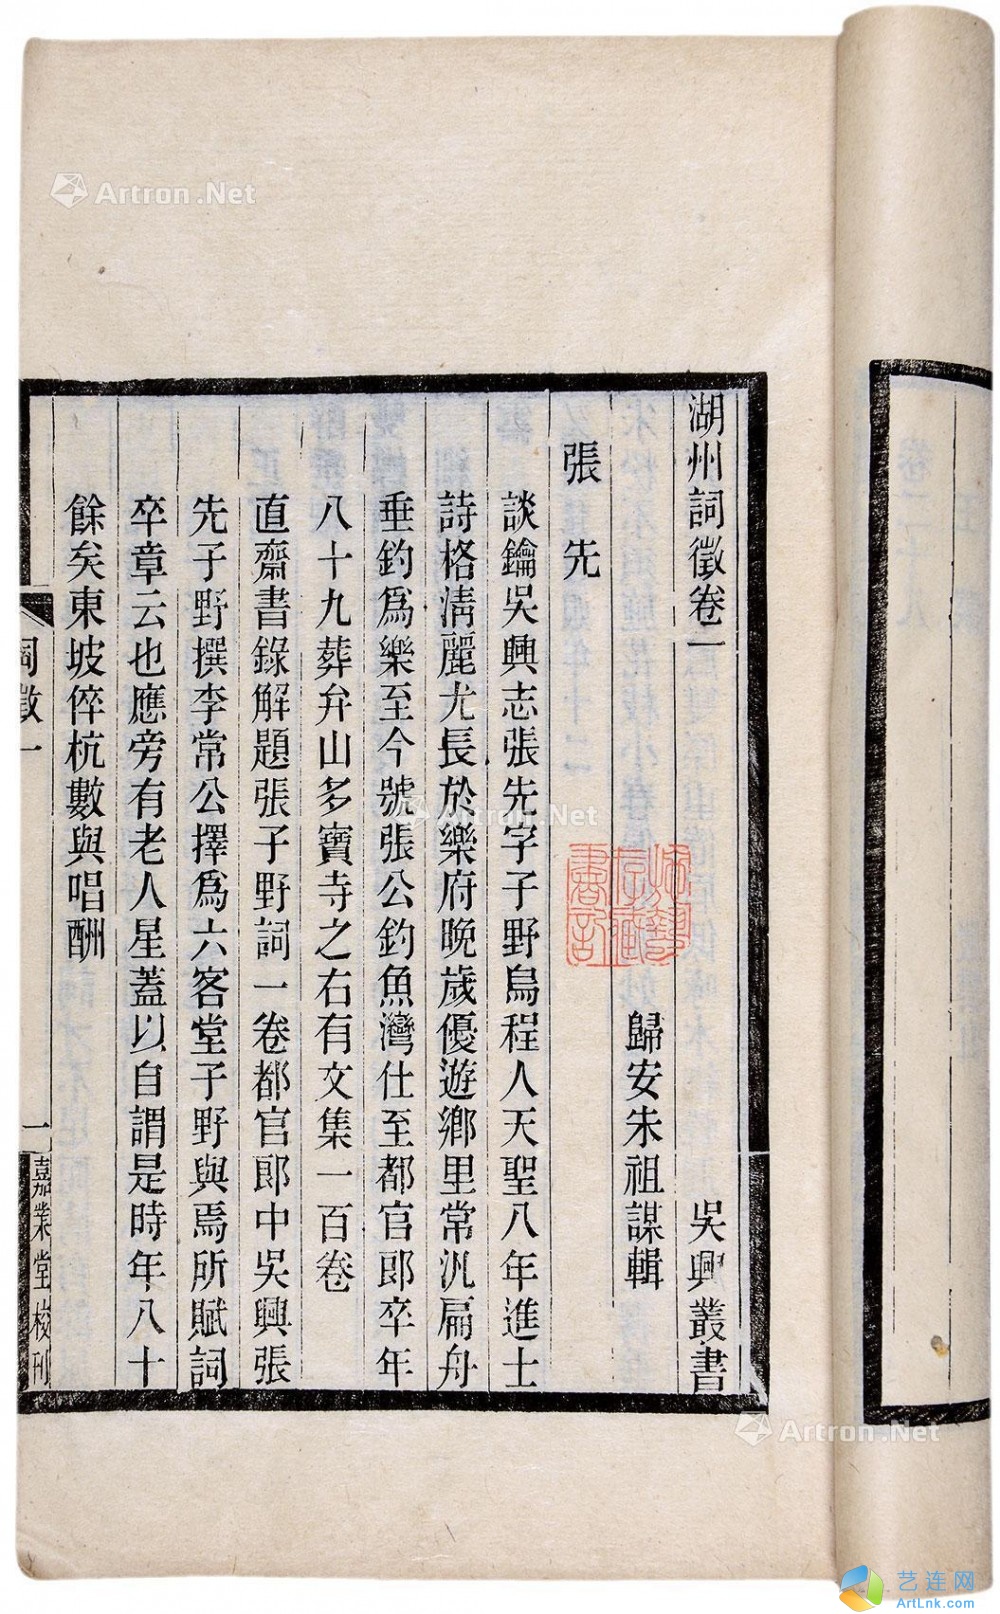 湖州詞徵卷一　吳興叢書
歸安朱祖謀輯
張先
談鑰吳興志張先字子野烏程人天聖八年進士
詩格清麗尤長於樂府晚歲優遊鄉里常汎扁舟
垂釣爲樂至今號張公釣魚灣仕至都官郎卒年
八十九葬弁山多寶寺之右有文集一百卷
直齋書錄解題張子野詞一卷都官郎中吳興張
先子野撰李常公擇爲六客堂子野與焉所賦詞
卒章云也應旁有老人星蓋以自謂是時年八十
餘矣東坡倅杭數與唱酬
詞徵一
一
嘉業堂校刊
Artron.Net
Artron.Net
Artron.Net
艺连网
ArtLnk.com